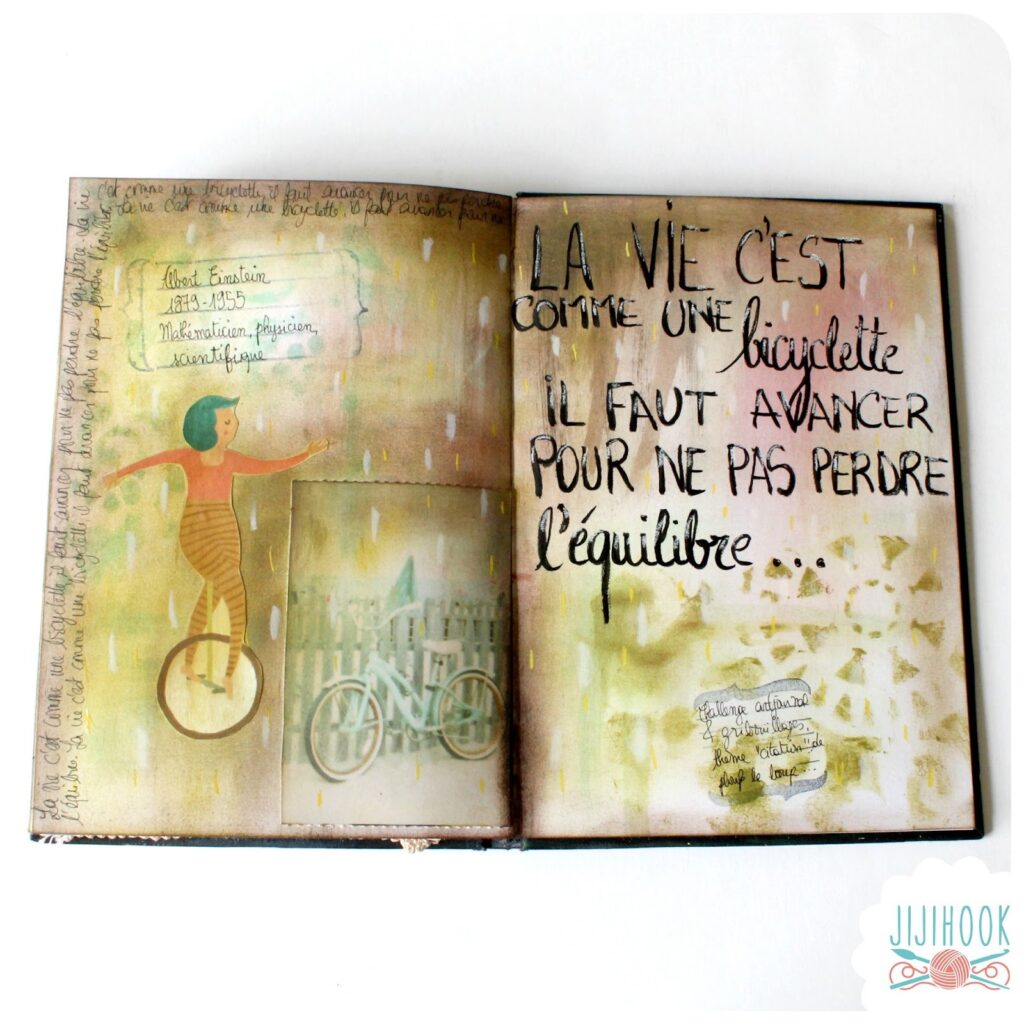 c'est comme une bicyclette, il faut avancer pour ne pas perdre
La vie c'est comme une bicyclette, il faut avancer pour ne
La vie c'est comme une bicyclette, il faut avancer pour ne pas perdre l'équilibre La vie
l'équilibre. La vie c'est comme une bicyclette il faut avancer pour ne pas perdre l'équilibre
Albert Einstein
1879-1955
Mathématicien, physicien,
scientifique
LA VIE C'EST
COMME UNE
bicyclette
IL FAUT AVANCER
POUR NE PAS PERDRE
l'équilibre...
challenge artjournal
& gribouillages,
thème "citation" de
le loup...
JIJIHOOK